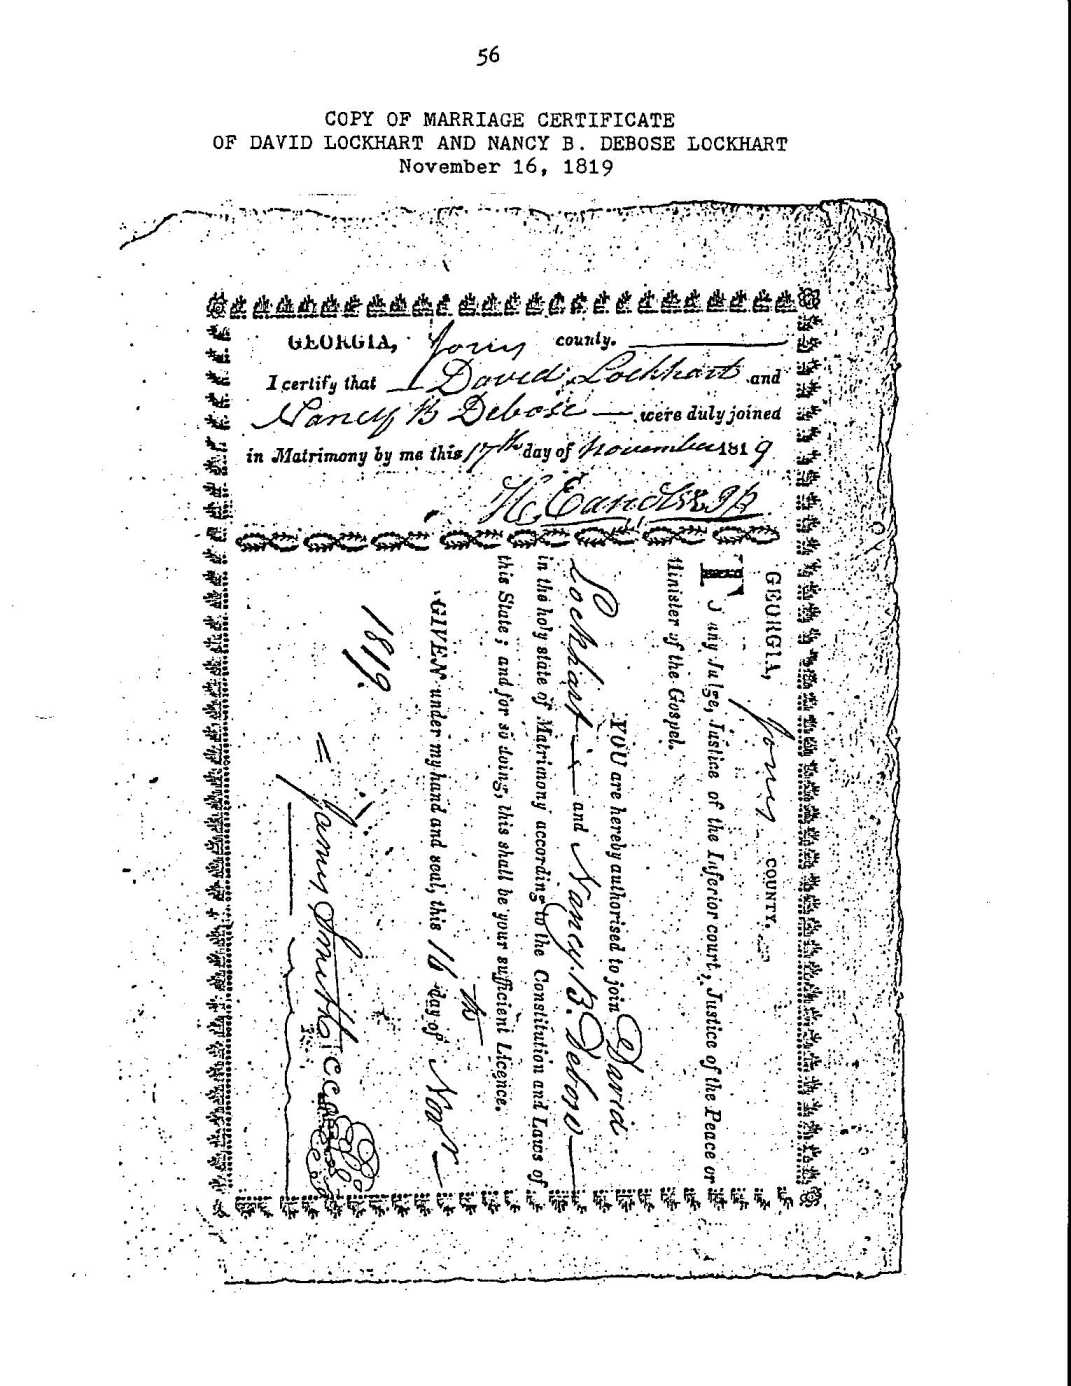 56
COPY OF MARRIAGE CERTIFICATE
OF DAVID LOCKHART AND NANCY B. DEBOSE LOCKHART
November 16, 1819
GEORGIA, Jones county.
I certify that David Lockhart and
Nancy B Debose were duly joined
in Matrimony by me this 17th day of November 1819
GEORGIA, Jones COUNTY.
To any Judge, Justice of the Inferior court, Justice of the Peace or
Minister of the Gospel.
YOU are hereby authorised to join David
Lockhart and Nancy B. Debose
in the holy state of Matrimony according to the Constitution and Laws of
this State; and for so doing, this shall be your sufficient Licence.
GIVEN under my hand and seal, this 16th day of Nov
1819.
James Smith